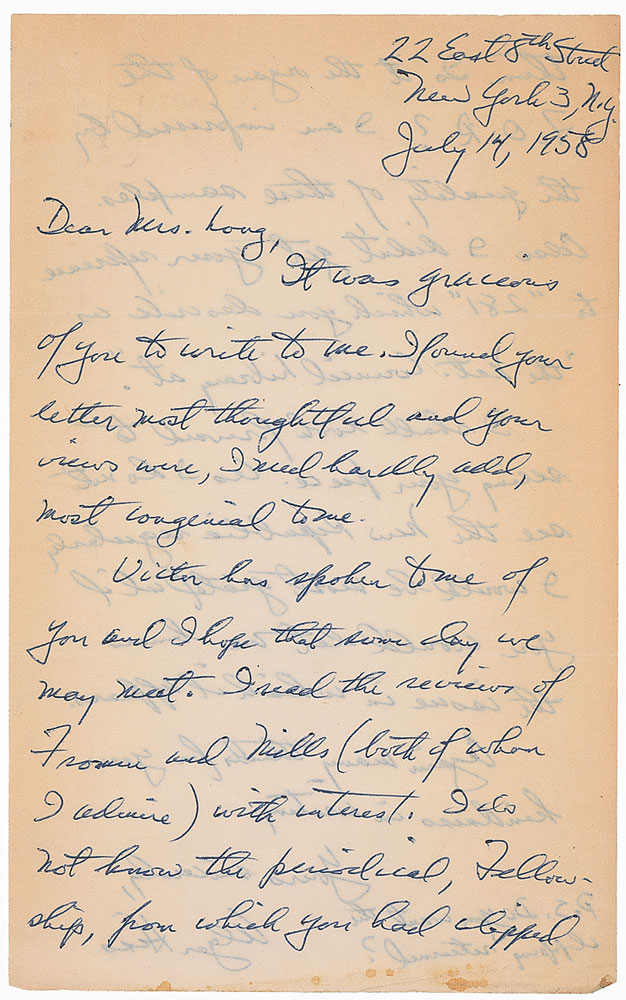 22 East 8th Street
New York 3, N.Y.
July 14, 1958
Dear Mrs. Long,
It was gracious
of you to write to me. I found your
letter most thoughtful and your
views were, I need hardly add,
most congenial to me.
Victor has spoken to me of
you and I hope that some day we
may meet. I read the reviews of
Fromm and Mills (both of whom
I admire) with interest. I do
not know the periodical, Fellow-
ship, from which you had clipped